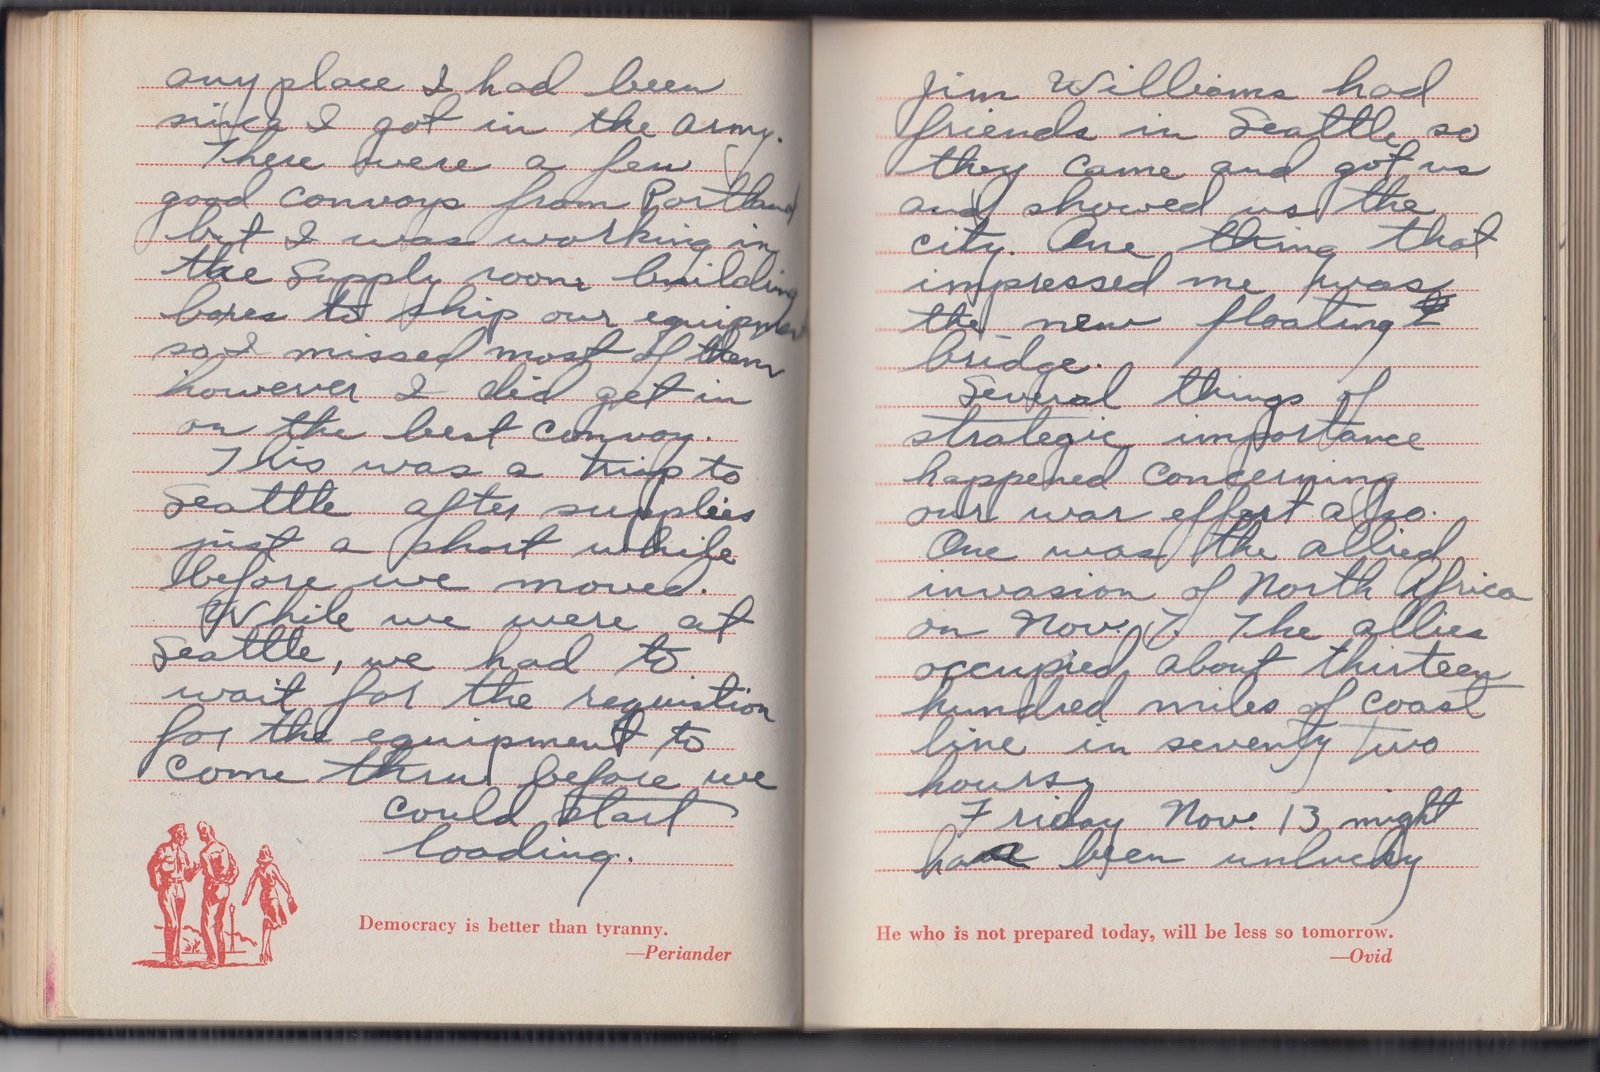 any place I had been
since I got in the army.
There were a few
good convoys from Portland
but I was working in
the Supply room building
boxes to ship our equipment
so I missed most of them
however I did get in
on the best convoy.
This was a trip to
Seattle after supplies
just a short while
before we moved.
While we were at
Seattle, we had to
wait for the requistion
for the equipment to
come thru before we
could start
loading.
Democracy is better than tyranny.
—Periander
Jim Williams had
friends in Seattle so
they came and got us
and showed us the
city. One thing that
impressed me was
the new floating
bridge.
Several things of
strategic importance
happened concerning
our war effort also.
One was the allied
invasion of North Africa
on Nov. 7. The allies
occupied about thirteen
hundred miles of coast
line in seventy two
hours.
Friday Nov. 13 might
have been unlucky
He who is not prepared today, will be less so tomorrow.
—Ovid